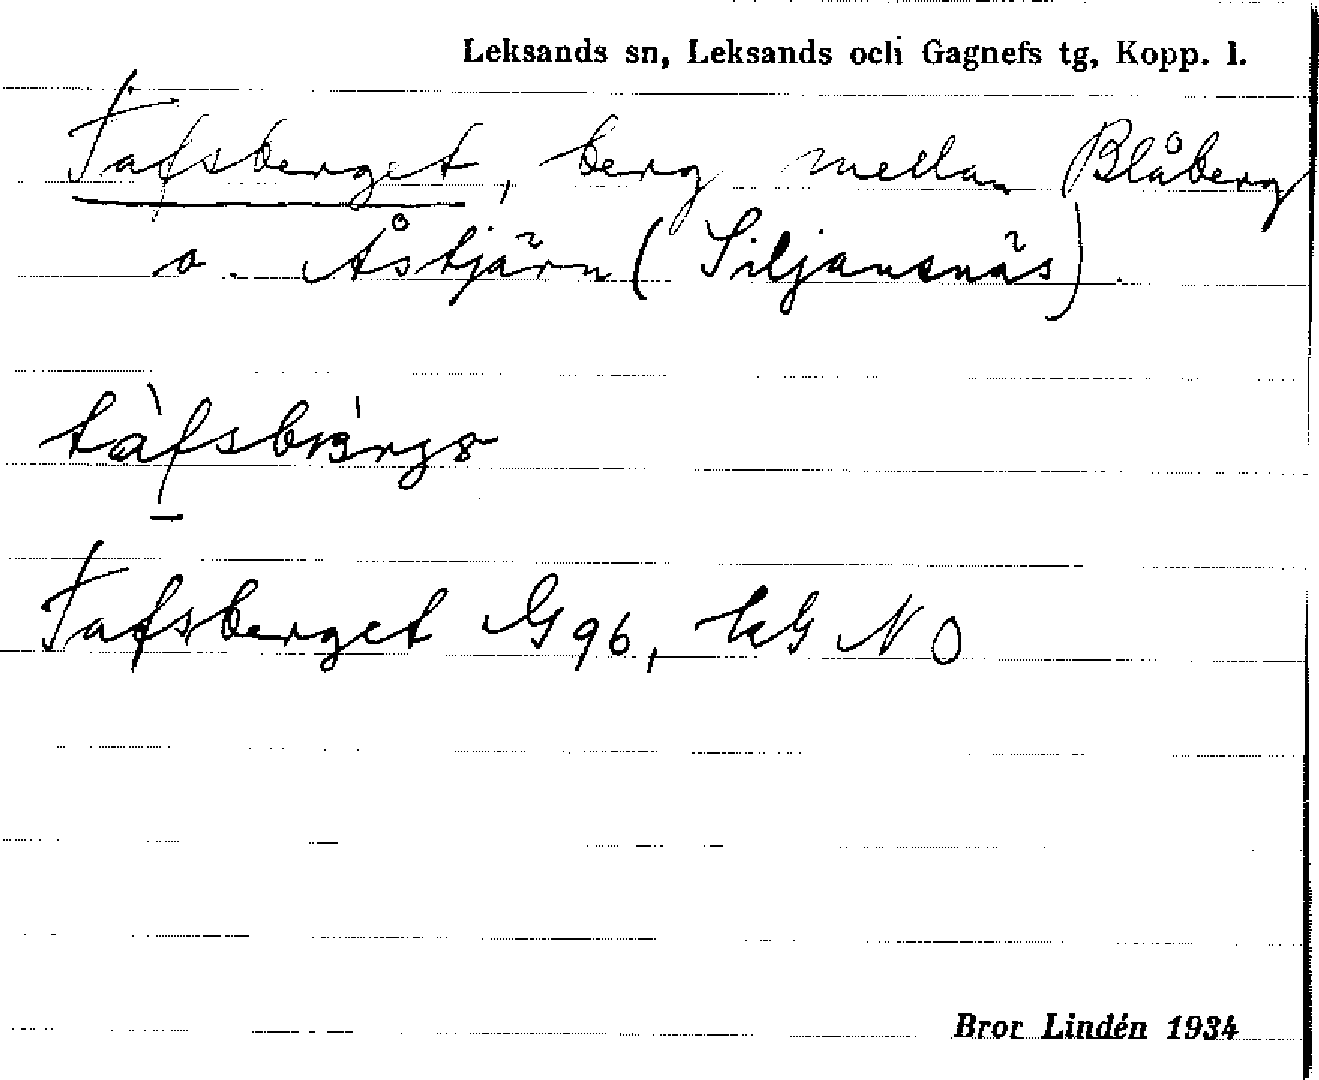 Leksands sn, Leksands och Gagnefs tg, Kopp. l.
Tafsberget, berg mellan Blåberg
o. Åstjärn (Siljansnäs).
Tafsberget G 96, LG NO
Bror Lindén 1934